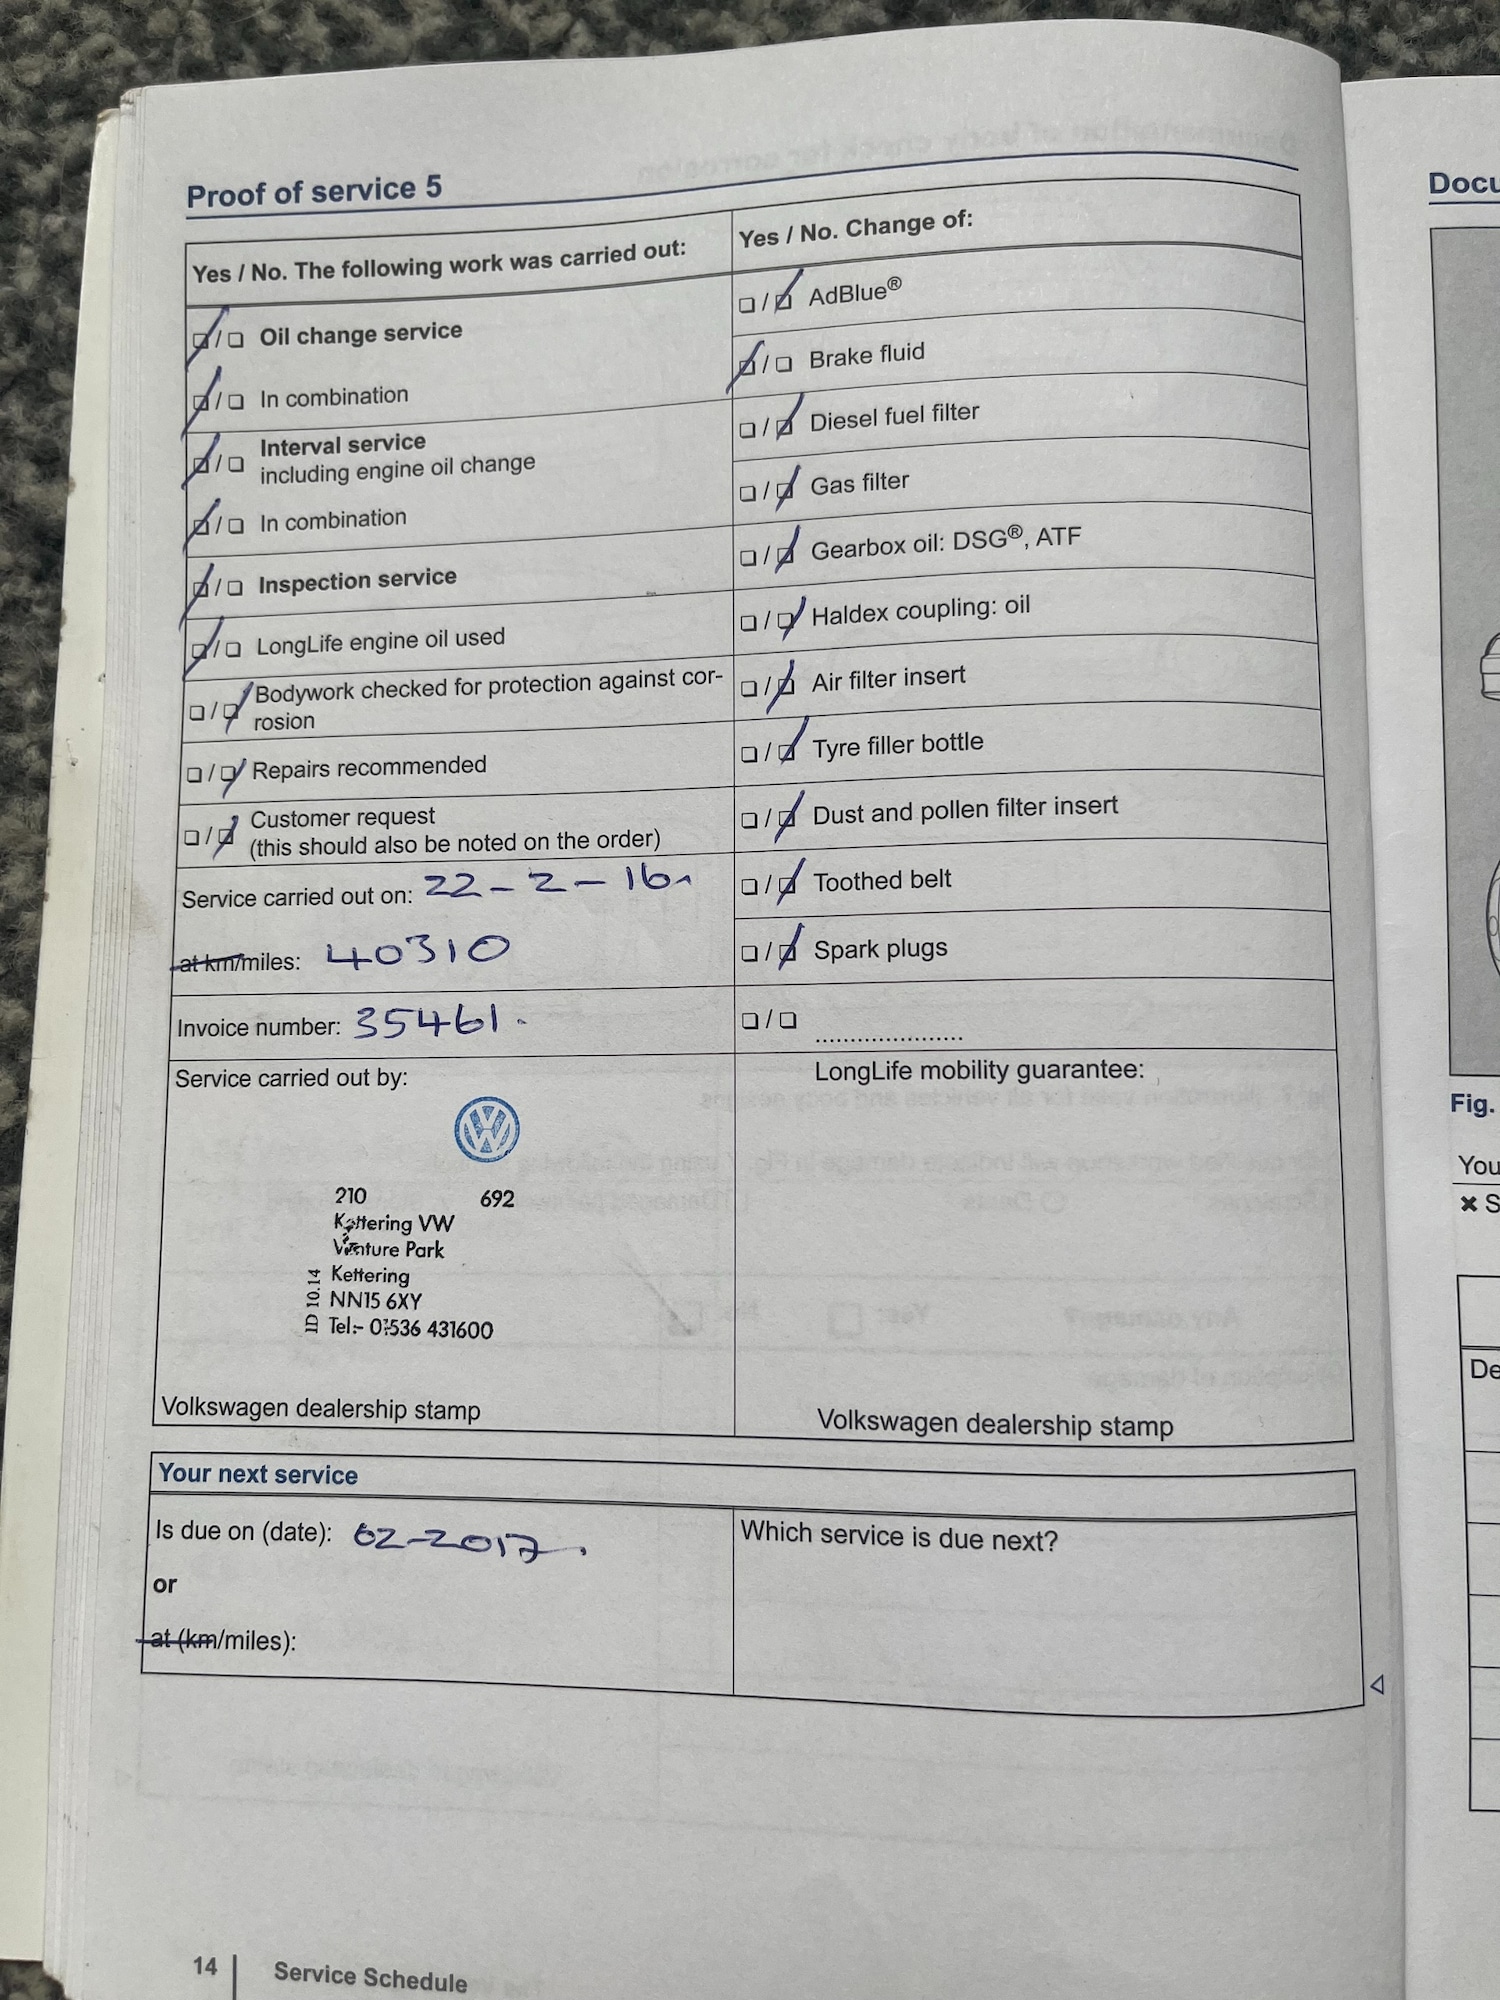 Proof of service 5
Yes / No. The following work was carried out:
☑/☐ Oil change service
☑/☐ In combination
☑/☐ Interval service
including engine oil change
☑/☐ In combination
☑/☐ Inspection service
☑/☐ LongLife engine oil used
☐/☑ Bodywork checked for protection against cor-
rosion
☐/☑ Repairs recommended
☐/☑ Customer request
(this should also be noted on the order)
Service carried out on: 22-2-16
at km/miles: 40310
Invoice number: 35461.
Service carried out by:
210 692
Kettering VW
Venture Park
Kettering
NN15 6XY
Tel:- 01536 431600
ID 10.14
Volkswagen dealership stamp
Yes / No. Change of:
☐/☑ AdBlue®
☑/☐ Brake fluid
☐/☑ Diesel fuel filter
☐/☑ Gas filter
☐/☑ Gearbox oil: DSG®, ATF
☐/☑ Haldex coupling: oil
☐/☑ Air filter insert
☐/☑ Tyre filler bottle
☐/☑ Dust and pollen filter insert
☐/☑ Toothed belt
☐/☑ Spark plugs
☐/☐ ......................
LongLife mobility guarantee:
Volkswagen dealership stamp
Your next service
Is due on (date): 02-2017.
or
at (km/miles):
Which service is due next?
14 | Service Schedule
Docu
Fig.
You
✖ S
De